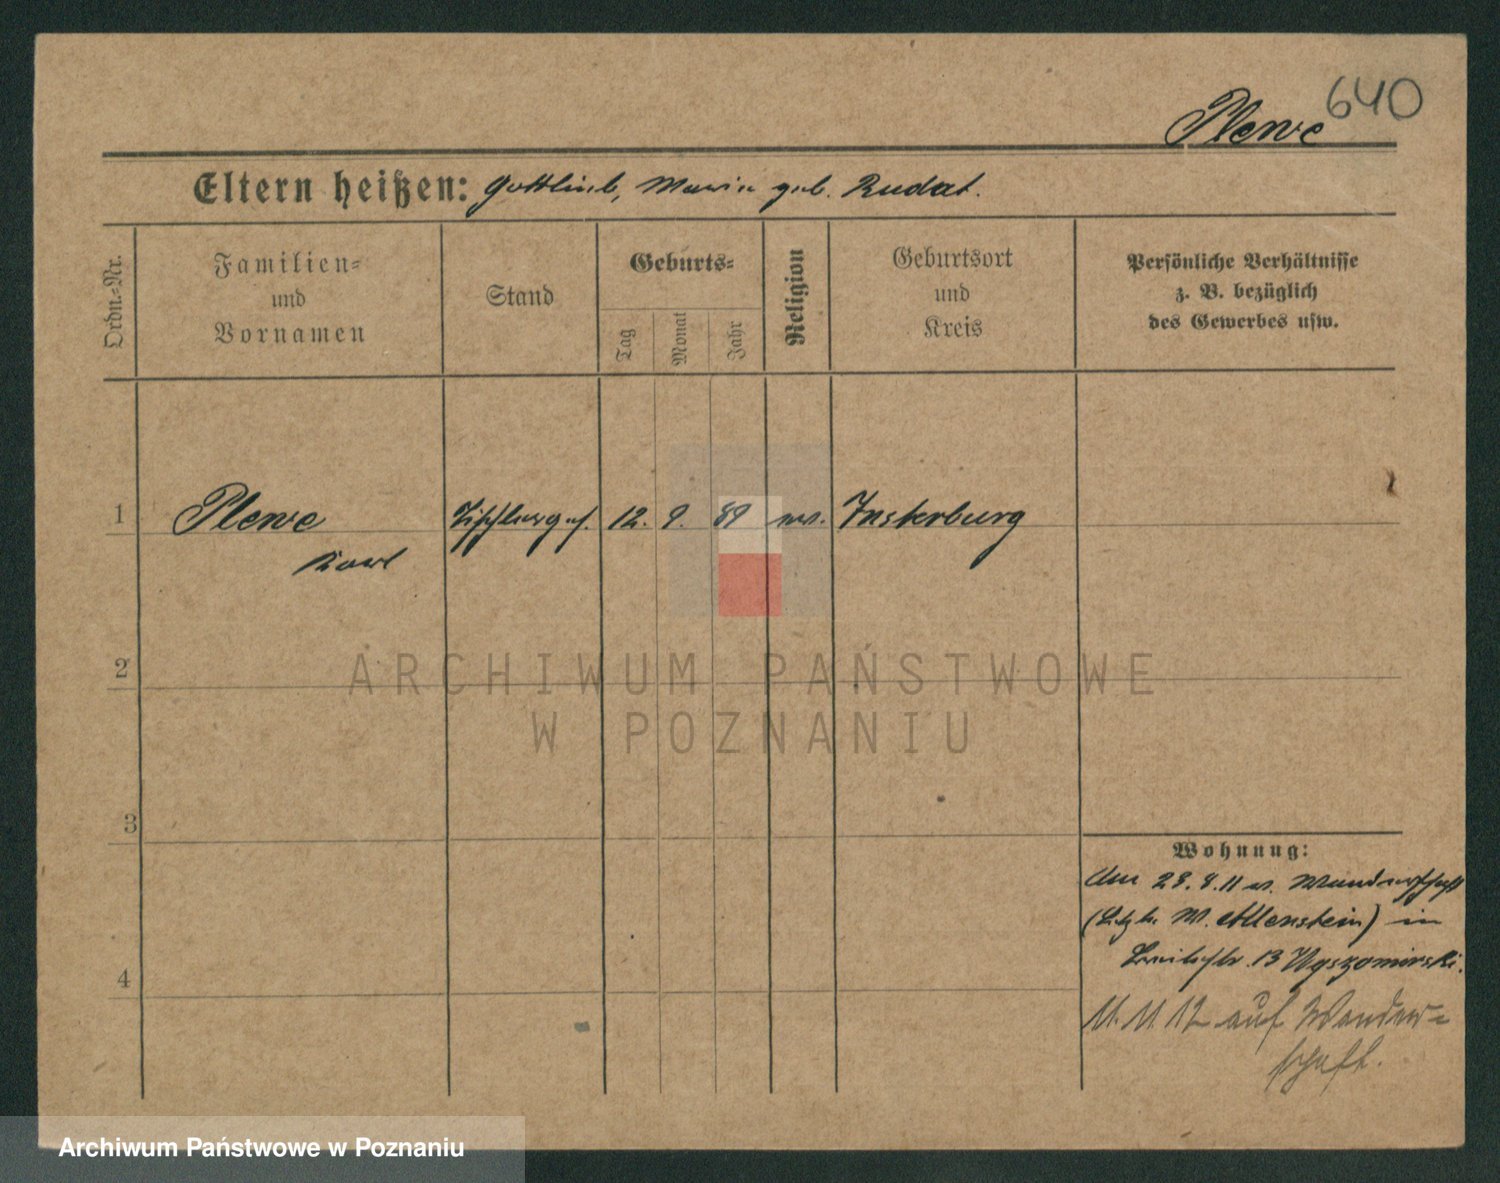 640
Plewe
Eltern heißen: Gottlieb, Maria geb. Rudat.
Ordn.-Nr.
Familien-
und
Vornamen
Stand
Geburts-
Tag
Monat
Jahr
Religion
Geburtsort
und
Kreis
Persönliche Verhältnisse
z. B. bezüglich
des Gewerbes usw.
1 Plewe Tischlerges. 12. 9. 89 ev. Insterburg
Karl
2
3
4
Wohnung:
Am 28. 9. 11 v. Wanderschaft
W. Allenstein) in
13
11. 11. 12 auf Wander-
schaft.
ARCHIWUM PAŃSTWOWE
W POZNANIU
Archiwum Państwowe w Poznaniu